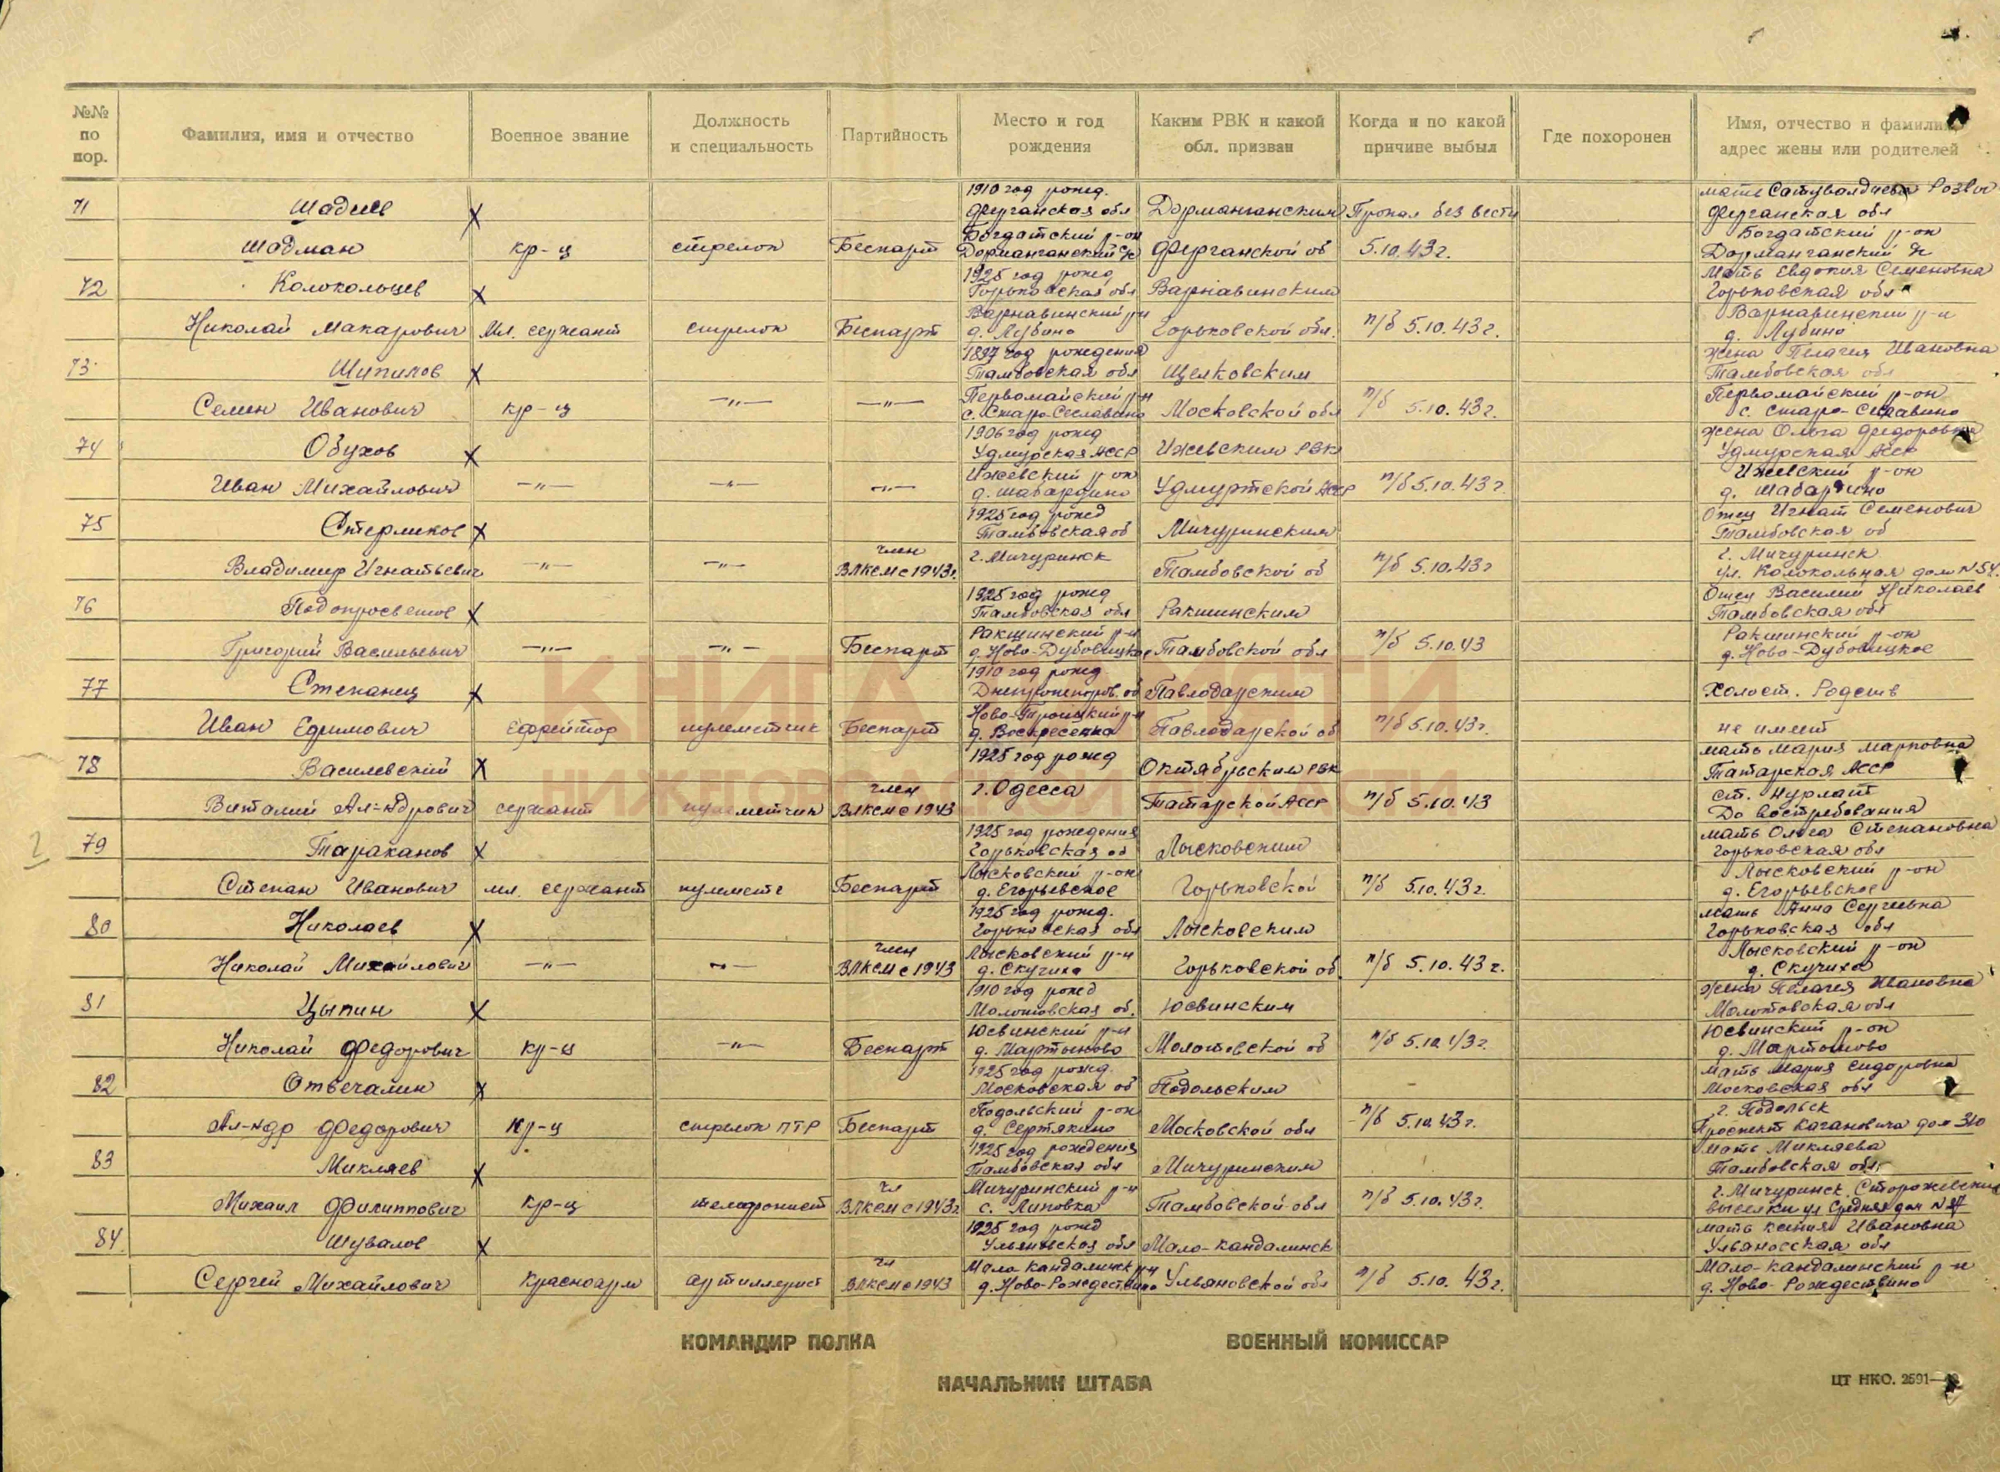 №№ по пор. | Фамилия, имя и отчество | Военное звание | Должность и специальность | Партийность | Место и год рождения | Каким РВК и какой обл. призван | Когда и по какой причине выбыл | Где похоронен | Имя, отчество и фамилия, адрес жены или родителей
71 Шадиев Шадман | кр-ц | стрелок | Беспарт | 1910 год рожд. Ферганская обл Богдатский р-он | Ферганской об | Пропал без вести 5.10.43 г. | мать Ферганская обл Богдатский р-он
72 Колокольцев Николай Макарович | Мл. сержант | стрелок | Беспарт | 1925 год рожд Горьковская обл Варнавинский р-н д. Лубино | Варнавинским Горьковской обл. | п/б 5.10.43 г. | Мать Евдокия Семеновна Горьковская обл Варнавинский р-н д. Лубино
73 Шипилов Семен Иванович | кр-ц | —"— | —"— | 1897 год рождения Тамбовская обл Первомайский р-н | Щелковским Московской обл | п/б 5.10.43 г. | жена Пелагея Ивановна Тамбовская обл Первомайский р-он
74 Обухов Иван Михайлович | —"— | —"— | —"— | 1906 год рожд Удмурская АССР Ижевский р-он д. Шабардино | Ижевским РВК Удмуртской АССР | п/б 5.10.43 г. | жена Ольга Федоровна Удмурская АССР Ижевский р-он д. Шабардино
75 Стерликов Владимир Игнатьевич | —"— | —"— | член ВЛКСМ с 1943 г. | 1925 год рожд Тамбовская об г. Мичуринск | Мичуринским Тамбовской об | п/б 5.10.43 г | Отец Игнат Семенович Тамбовская об г. Мичуринск ул. Колокольная дом N 54
76 Подопросветов Григорий Васильевич | —"— | —"— | Беспарт | 1925 год рожд Тамбовская обл Ракшинский р-н д. Ново-Дубовицкое | Ракшинским Тамбовской обл | п/б 5.10.43 | Отец Василий Николаев Тамбовская обл Ракшинский р-он д. Ново-Дубовицкое
77 Степанец Иван Ефимович | Ефрейтор | пулеметчик | Беспарт | 1910 год рожд. Днепропетров. об Ново-Троицкий р-н д. Воскресенка | Павлодарским Павлодарской об | п/б 5.10.43 г. | Холост. Родств не имеет
78 Василевский Виталий Ал-ндрович | сержант | пулеметчик | член ВЛКСМ с 1943 | 1925 год рожд г. Одесса | Октябрьским РВК Татарской АССР | п/б 5.10.43 | мать Мария Марковна Татарская АССР ст. Нурлат До востребования
79 Тараканов Степан Иванович | мл. сержант | пулеметч | Беспарт | 1925 год рождения Горьковская об Лысковский р-он д. Егорьевское | Лысковским Горьковской | п/б 5.10.43 г. | мать Ольга Степановна Горьковская обл Лысковский р-он д. Егорьевское
80 Николаев Николай Михайлович | —"— | —"— | член ВЛКСМ с 1943 | 1925 год рожд. Горьковская обл Лысковский р-н д. Скучиха | Лысковским Горьковской об. | п/б 5.10.43 г. | мать Анна Сергеевна Горьковская обл Лысковский р-он д. Скучиха
81 Цыпин Николай Федорович | кр-ц | —"— | Беспарт | 1910 год рожд Молотовская об. Юсвинский р-н д. Мартыново | Юсвинским Молотовской об | п/б 5.10.43 г. | жена Пелагея Ивановна Молотовская обл Юсвинский р-он д. Мартыново
82 Отвечалин Ал-ндр Федорович | кр-ц | стрелок ПТР | Беспарт | 1925 год рожд. Московская об Подольский р-он д. Сертякино | Подольским Московской обл | п/б 5.10.43 г. | мать Мария Сидоровна Московская обл г. Подольск Проспект Кагановича дом
83 Микляев Михаил Филиппович | кр-ц | телефонист | чл ВЛКСМ с 1943 г | 1925 год рождения Тамбовская обл Мичуринский р-н с. Липовка | Мичуринским Тамбовской обл | п/б 5.10.43 г. | мать Микляева Тамбовская обл. г. Мичуринск. Сторожевские выселки ул Средняя дом
84 Шувалов Сергей Михайлович | Красноарм | артиллерист | чл ВЛКСМ с 1943 | 1925 год рожд Ульяновская обл Мало кандалинск р-н д. Ново-Рождествино | Мало-кандалинск Ульяновской обл | п/б 5.10.43 г. | мать Ксения Ивановна Ульяновская обл Мало-кандалинский р-н д. Ново-Рождествино
КОМАНДИР ПОЛКА
ВОЕННЫЙ КОМИССАР
НАЧАЛЬНИК ШТАБА
ЦТ НКО. 2591
КНИГА ПАМЯТИ
НИЖЕГОРОДСКОЙ ОБЛАСТИ
ПАМЯТЬ НАРОДА